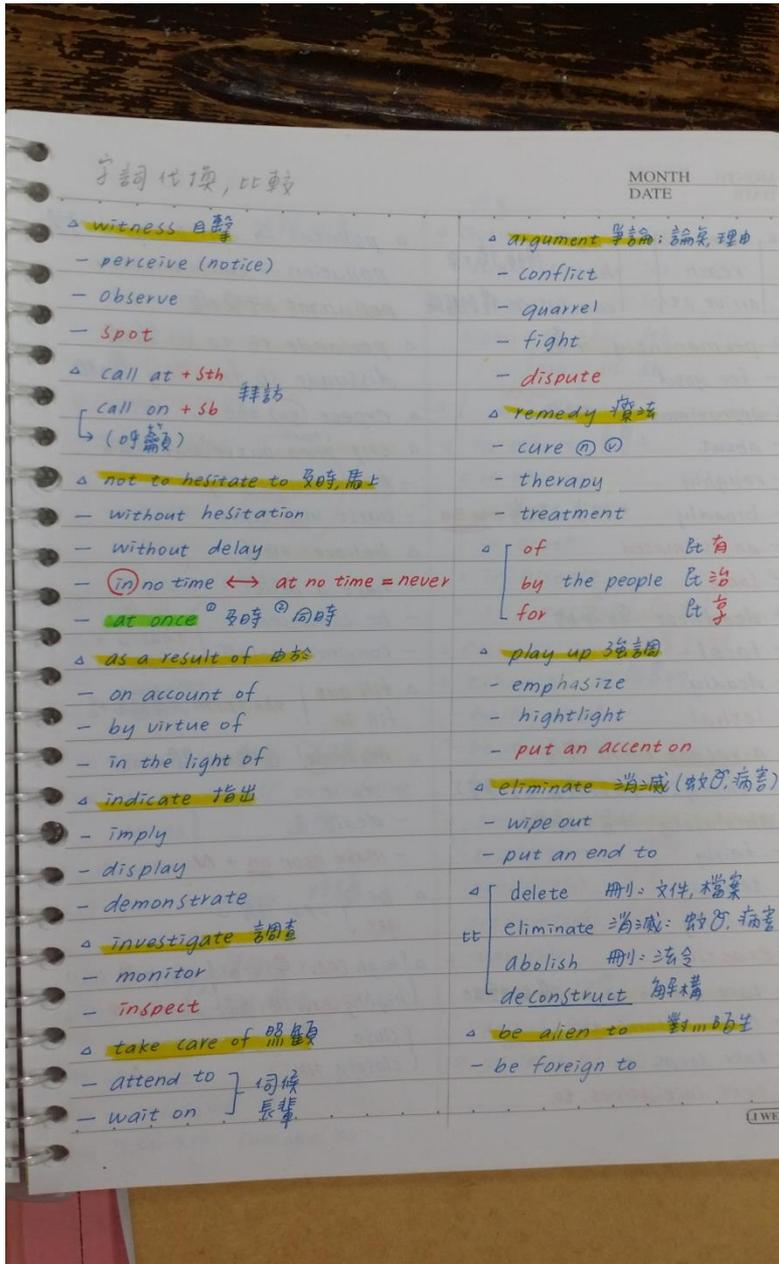 字詞代換,比較
MONTH
DATE
△ witness 目擊
- perceive (notice)
- observe
- spot
△ call at + sth
call on + sb 拜訪
(呼籲)
△ not to hesitate to 及時,馬上
- without hesitation
- without delay
- in no time ↔ at no time = never
- at once ①及時 ②同時
△ as a result of 由於
- on account of
- by virtue of
- in the light of
△ indicate 指出
- imply
- display
- demonstrate
△ investigate 調查
- monitor
- inspect
△ take care of 照顧
- attend to
- wait on
伺候
長輩
△ argument 爭論;論矣,理由
- conflict
- quarrel
- fight
- dispute
△ remedy 療法
- cure ⓝ ⓥ
- therapy
- treatment
△ of 民有
by the people 民治
for 民享
△ play up 強調
- emphasize
- hightlight
- put an accent on
△ eliminate 消滅(蚊子,病害)
- wipe out
- put an end to
△ delete 刪:文件,檔案
比 eliminate 消滅:蚊子,病害
abolish 刪:法令
deconstruct 解構
△ be alien to 對...陌生
- be foreign to